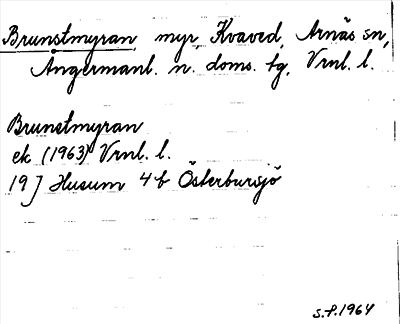 Brunstmyran, myr, Kvaved, Arnäs sn,
Ångermanl. n. doms. tg, Vrnl. l.
Brunstmyran
ek (1963) Vrnl. l.
19 J Husum 4 b Österbursjö
S.F. 1964